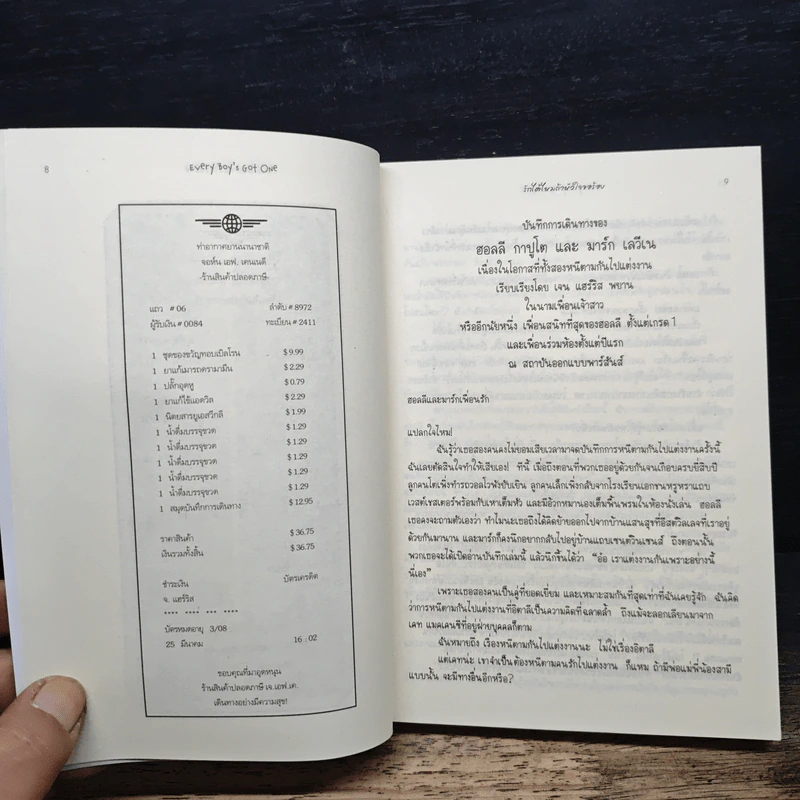 8
Every Boy's Got One
ท่าอากาศยานนานาชาติ
จอห์น เอฟ. เคนเนดี
ร้านสินค้าปลอดภาษี
แถว # 06 ลำดับ # 8972
ผู้รับเงิน # 0084 ทะเบียน # 2411
1 ชุดของขวัญทอบเบิลโรน $ 9.99
1 ยาแก้เมารถดรามามีน $ 2.29
1 ปลั๊กอุดหู $ 0.79
1 ยาแก้ไข้แอดวิล $ 2.29
1 นิตยสารยูเอสวีกลี $ 1.99
1 น้ำดื่มบรรจุขวด $ 1.29
1 น้ำดื่มบรรจุขวด $ 1.29
1 น้ำดื่มบรรจุขวด $ 1.29
1 น้ำดื่มบรรจุขวด $ 1.29
1 น้ำดื่มบรรจุขวด $ 1.29
1 สมุดบันทึกการเดินทาง $ 12.95
ราคาสินค้า $ 36.75
เงินรวมทั้งสิ้น $ 36.75
ชำระเงิน บัตรเครดิต
จ. แฮร์ริส
**** **** *** ****
บัตรหมดอายุ 3/08
25 มีนาคม 16 : 02
ขอบคุณที่มาอุดหนุน
ร้านสินค้าปลอดภาษี เจ.เอฟ.เค.
เดินทางอย่างมีความสุข!
9
บันทึกการเดินทางของ
ฮอลลี กาปูโต และ มาร์ก เลวีเน
เนื่องในโอกาสที่ทั้งสองหนีตามกันไปแต่งงาน
เรียบเรียงโดย เจน แฮร์ริส พยาน
ในนามเพื่อนเจ้าสาว
หรืออีกนัยหนึ่ง เพื่อนสนิทที่สุดของฮอลลี ตั้งแต่เกรด 1
และเพื่อนร่วมห้องตั้งแต่ปีแรก
ณ สถาบันออกแบบพาร์สันส์
ฮอลลีและมาร์กเพื่อนรัก
แปลกใจไหม!
ฉันรู้ว่าเธอสองคนคงไม่ยอมเสียเวลามาจดบันทึกการหนีตามกันไปแต่งงานครั้งนี้
ฉันเลยตัดสินใจทำให้เสียเอง! ทีนี้ เมื่อถึงตอนที่พวกเธออยู่ด้วยกันจนเกือบครบยี่สิบปี
ลูกคนโตเพิ่งทำรถวอลโวพังยับเยิน ลูกคนเล็กเพิ่งกลับจากโรงเรียนเอกชนหรูหราแถบ
เวสต์เชสเตอร์พร้อมกับเหาเต็มหัว และมีอ้วกหมานองเต็มพื้นพรมในห้องนั่งเล่น ฮอลลี
เธอคงจะถามตัวเองว่า ทำไมนะเธอถึงได้คิดย้ายออกไปจากบ้านแสนสุขที่อีสต์วิลเลจที่เราอยู่
ด้วยกันมานาน และมาร์กก็คงนึกอยากกลับไปอยู่บ้านแถบเซนต์วินเซนส์ ถึงตอนนั้น
พวกเธอจะได้เปิดอ่านบันทึกเล่มนี้ แล้วนึกขึ้นได้ว่า "อ้อ เราแต่งงานกันเพราะอย่างนี้
นี่เอง"
เพราะเธอสองคนเป็นคู่ที่ยอดเยี่ยม และเหมาะสมกันที่สุดเท่าที่ฉันเคยรู้จัก ฉันคิด
ว่าการหนีตามกันไปแต่งงานที่อิตาลีเป็นความคิดที่ฉลาดล้ำ ถึงแม้จะลอกเลียนมาจาก
เคท แมคเคนซีที่อยู่ฝ่ายบุคคลก็ตาม
ฉันหมายถึง เรื่องหนีตามกันไปแต่งงานนะ ไม่ใช่เรื่องอิตาลี
แต่เคทน่ะ เขาจำเป็นต้องหนีตามคนรักไปแต่งงาน ก็แหม ถ้ามีพ่อแม่พี่น้องสามี
แบบนั้น จะมีทางอื่นอีกหรือ?